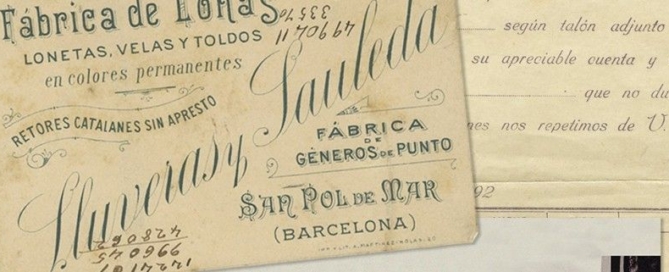 Fábrica de Lonas
LONETAS, VELAS Y TOLDOS
en colores permanentes
RETORES CATALANES SIN APRESTO
Lluveras y Sauleda
FÁBRICA
DE
GÉNEROS DE PUNTO
SAN POL DE MAR
(BARCELONA)
según talón adjunto
su apreciable cuenta y
que no du
nes nos repetimos de V
92